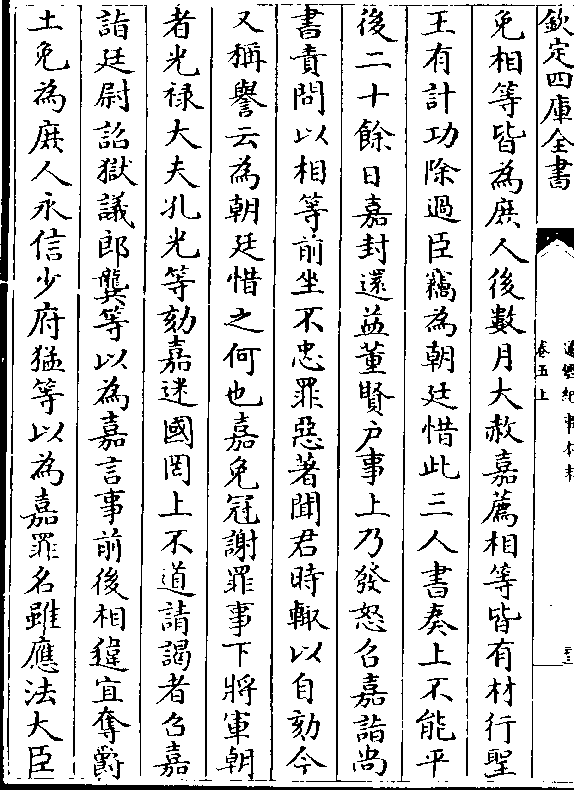 欽定四庫全書
通鑑紀事本末
卷五上
免相等皆為庶人後數月大赦嘉薦相等皆有材行聖
王有計功除過臣竊為朝廷惜此三人書奏上不能平
後二十餘日嘉封還益董賢户事上乃發怒召嘉詣尚
書責問以相等前坐不忠罪惡著聞君時輒以自劾今
又稱譽云為朝廷惜之何也嘉免冠謝罪事下將軍朝
者光禄大夫孔光等劾嘉迷國罔上不道請謁者召嘉
詣廷尉詔獄議郎龔等以為嘉言事前後相違宜奪爵
土免為庶人永信少府猛等以為嘉罪名雖應法大臣